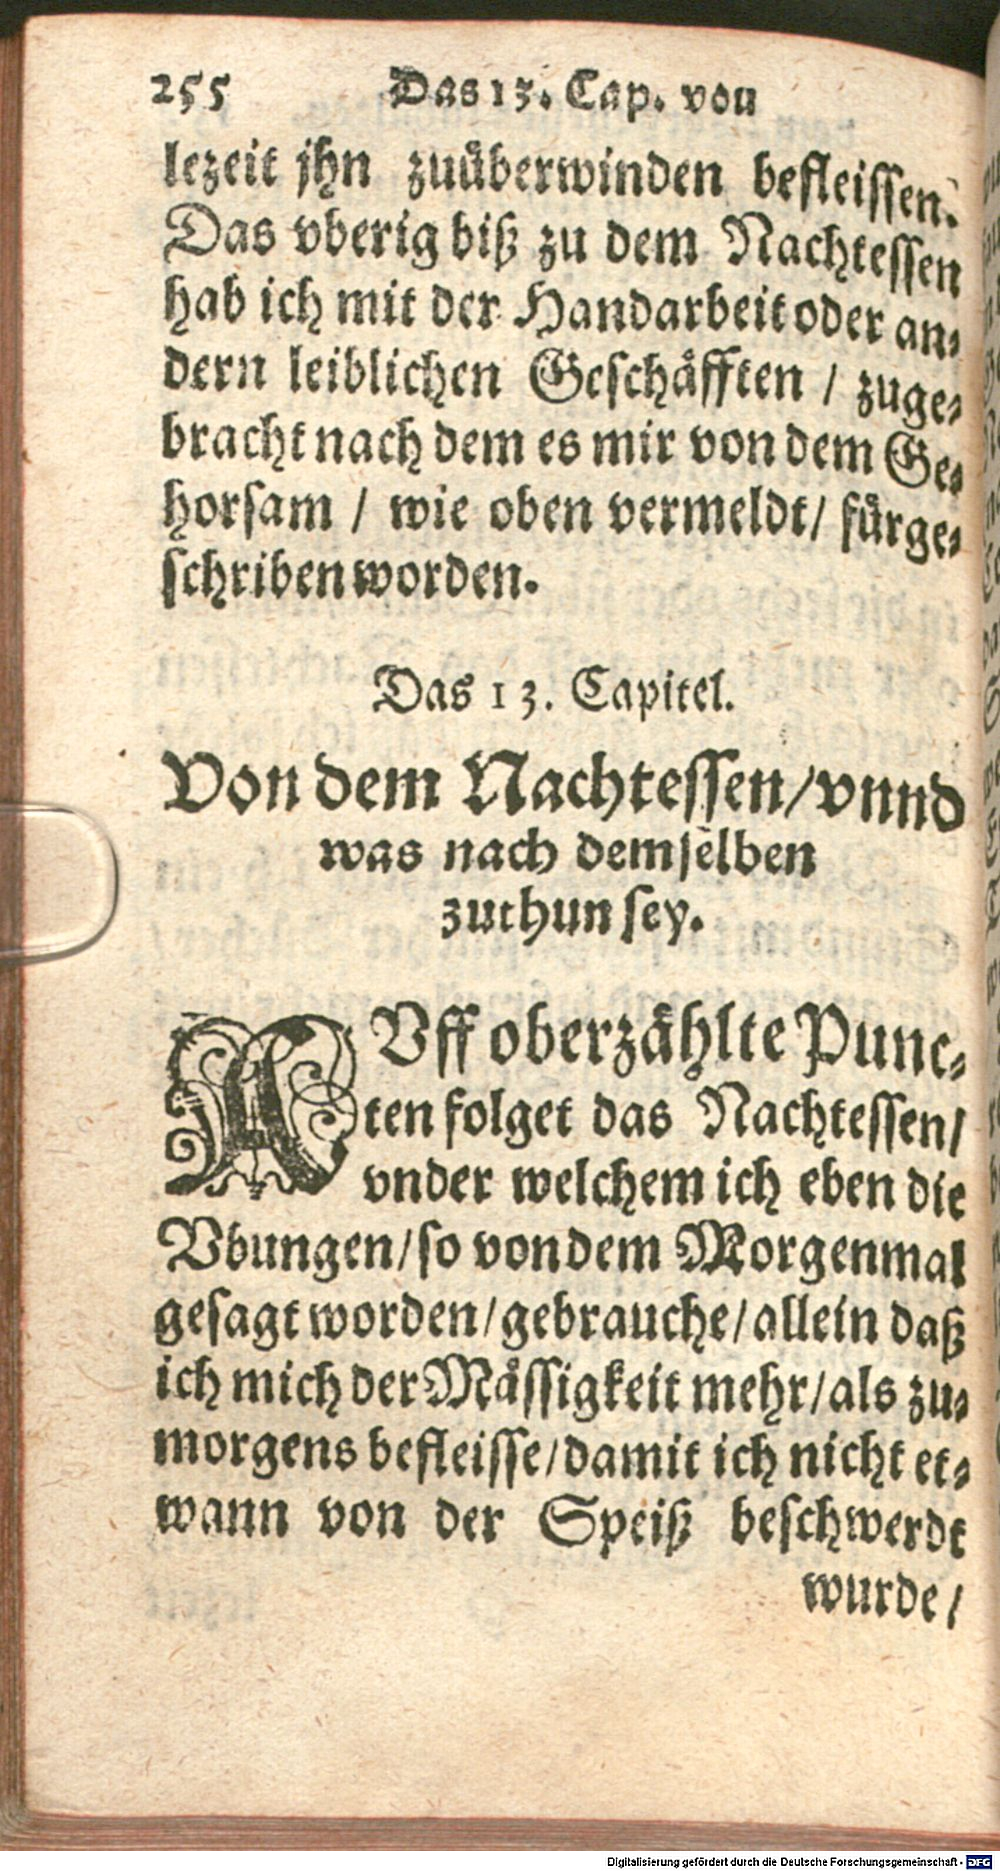 255 Das 13. Cap. von
lezeit jhn zuüberwinden befleissen.
Das vberig biß zu dem Nachtessen
hab ich mit der Handarbeit oder an-
dern leiblichen Geschäfften / zuge-
bracht nach dem es mir von dem Ge-
horsam / wie oben vermeldt / fürge-
schriben worden.
Das 13. Capitel.
Von dem Nachtessen / vnnd
was nach demselben
zuthun sey.
AVff oberzählte Punc-
ten folget das Nachtessen /
vnder welchem ich eben die
Vbungen / so von dem Morgenmal
gesagt worden / gebrauche / allein daß
ich mich der Mässigkeit mehr / als zu-
morgens befleisse / damit ich nicht et-
wann von der Speiß beschwerdt
wurde /
Digitalisierung gefördert durch die Deutsche Forschungsgemeinschaft - DFG